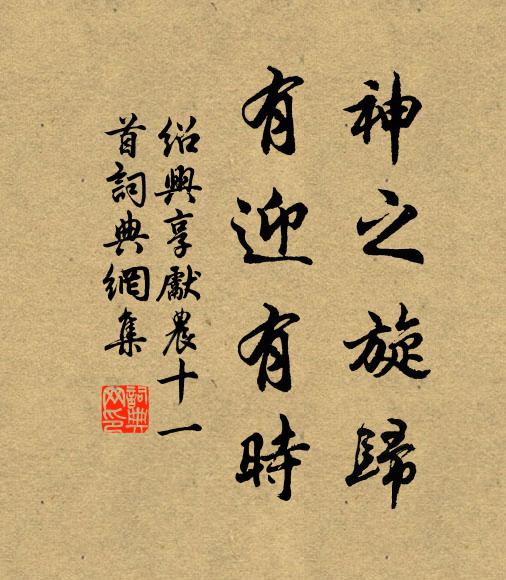 神之旋歸
有迎有時
紹興享獻農十一
首詞典網集
詞典
网印